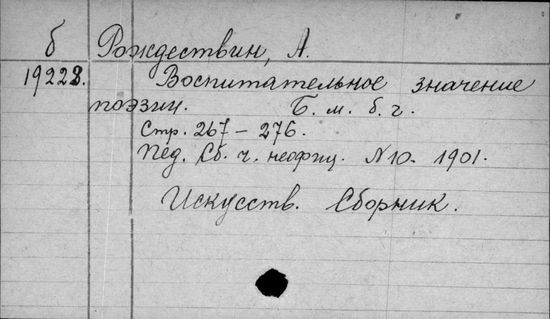 б Рождествин, А.
19228. Воспитательное значение
поэзии. Б. м. б. г.
Стр. 267 – 276.
Пед. Сб. ч. неофиц. N 10. 1901.
Искусств. Сборник.